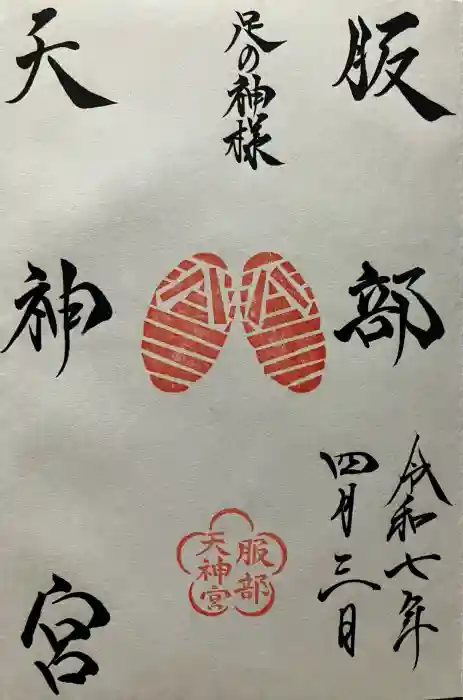 服部
足の神様
天神宮
令和七年
四月三日
服部
天神宮